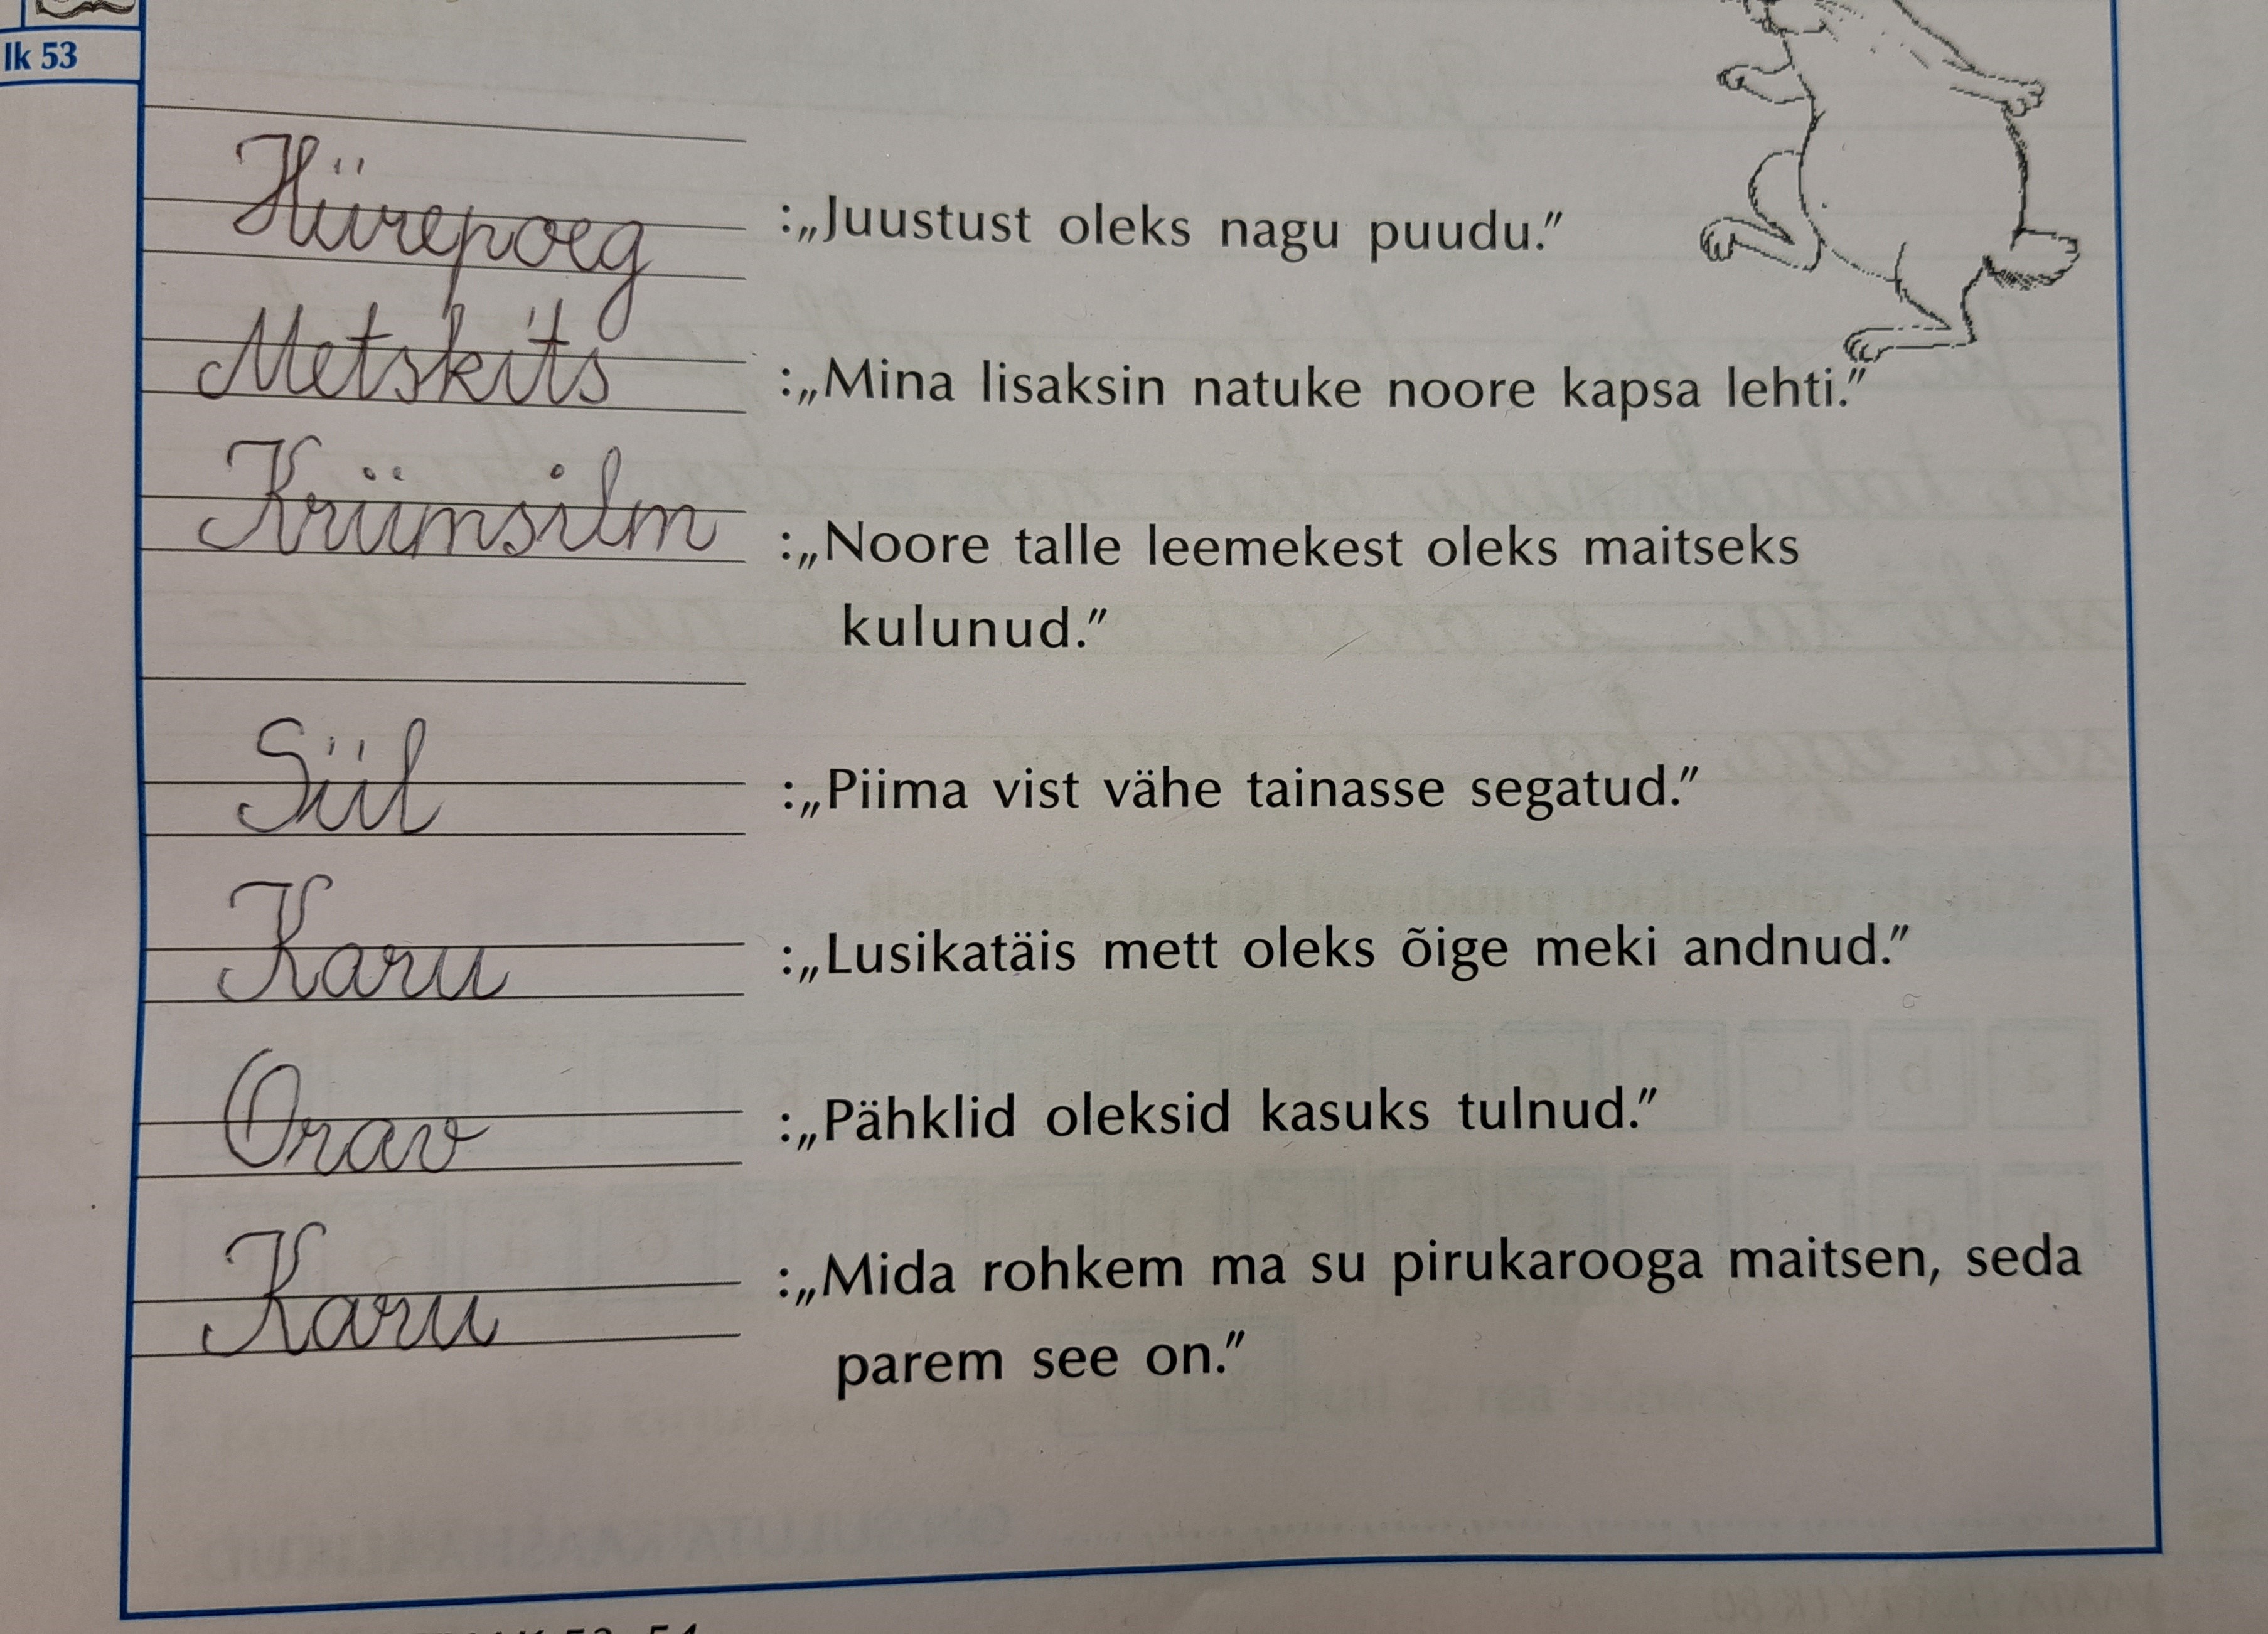 lk 53
Hiirepoeg :„Juustust oleks nagu puudu.”
Metskits :„Mina lisaksin natuke noore kapsa lehti.”
Kriimsilm :„Noore talle leemekest oleks maitseks
kulunud.”
Siil :„Piima vist vähe tainasse segatud.”
Karu :„Lusikatäis mett oleks õige meki andnud.”
Orav :„Pähklid oleksid kasuks tulnud.”
Karu :„Mida rohkem ma su pirukarooga maitsen, seda
parem see on.”